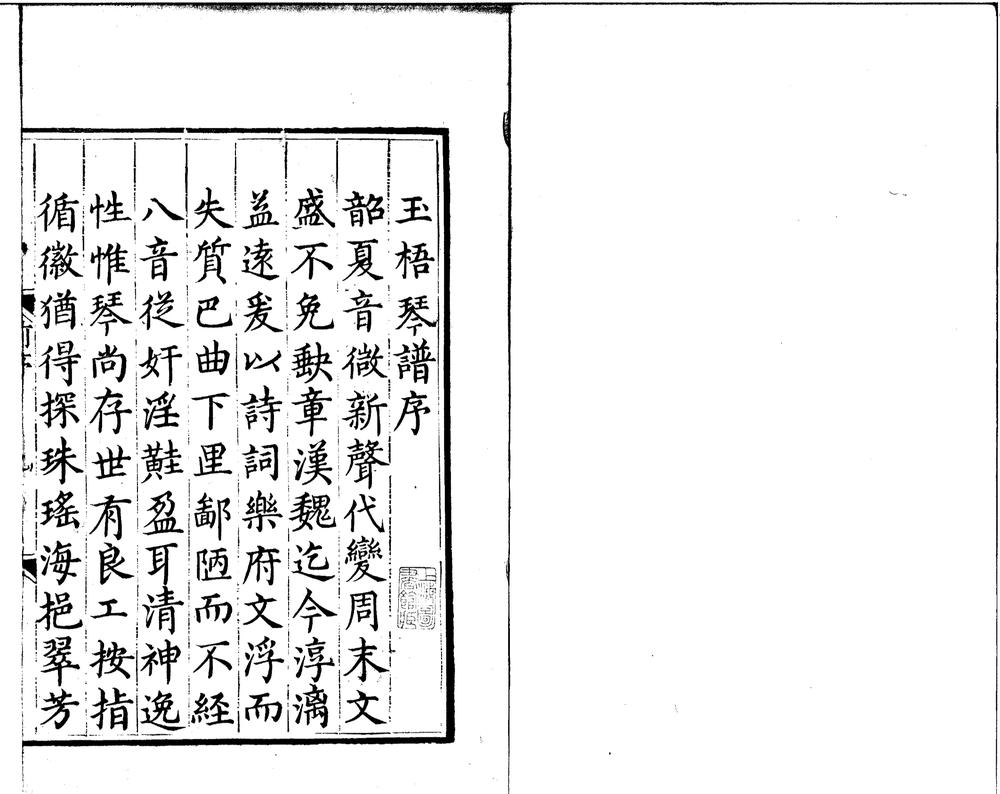 玉梧琴譜序
韶夏音微新聲代變周末文
盛不免缺章漢魏迄今淳漓
益遠爰以詩詞樂府文浮而
失質巴曲下里鄙陋而不経
八音從奸淫䵷盈耳清神逸
性惟琴尚存世有良工按指
循徽猶得探珠瑤海挹翠芳
上海圖書館藏